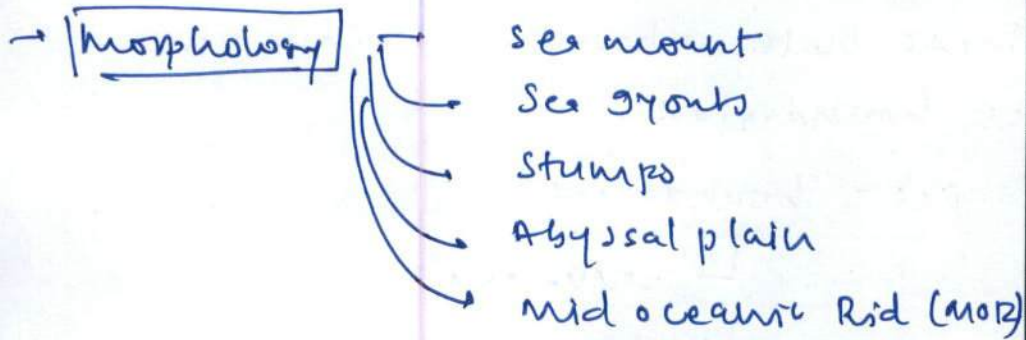 → Morphology → Sea mount
→ Sea gyonts
→ Stumps
→ Abyssal plain
→ Mid oceanic Rid (MOR)